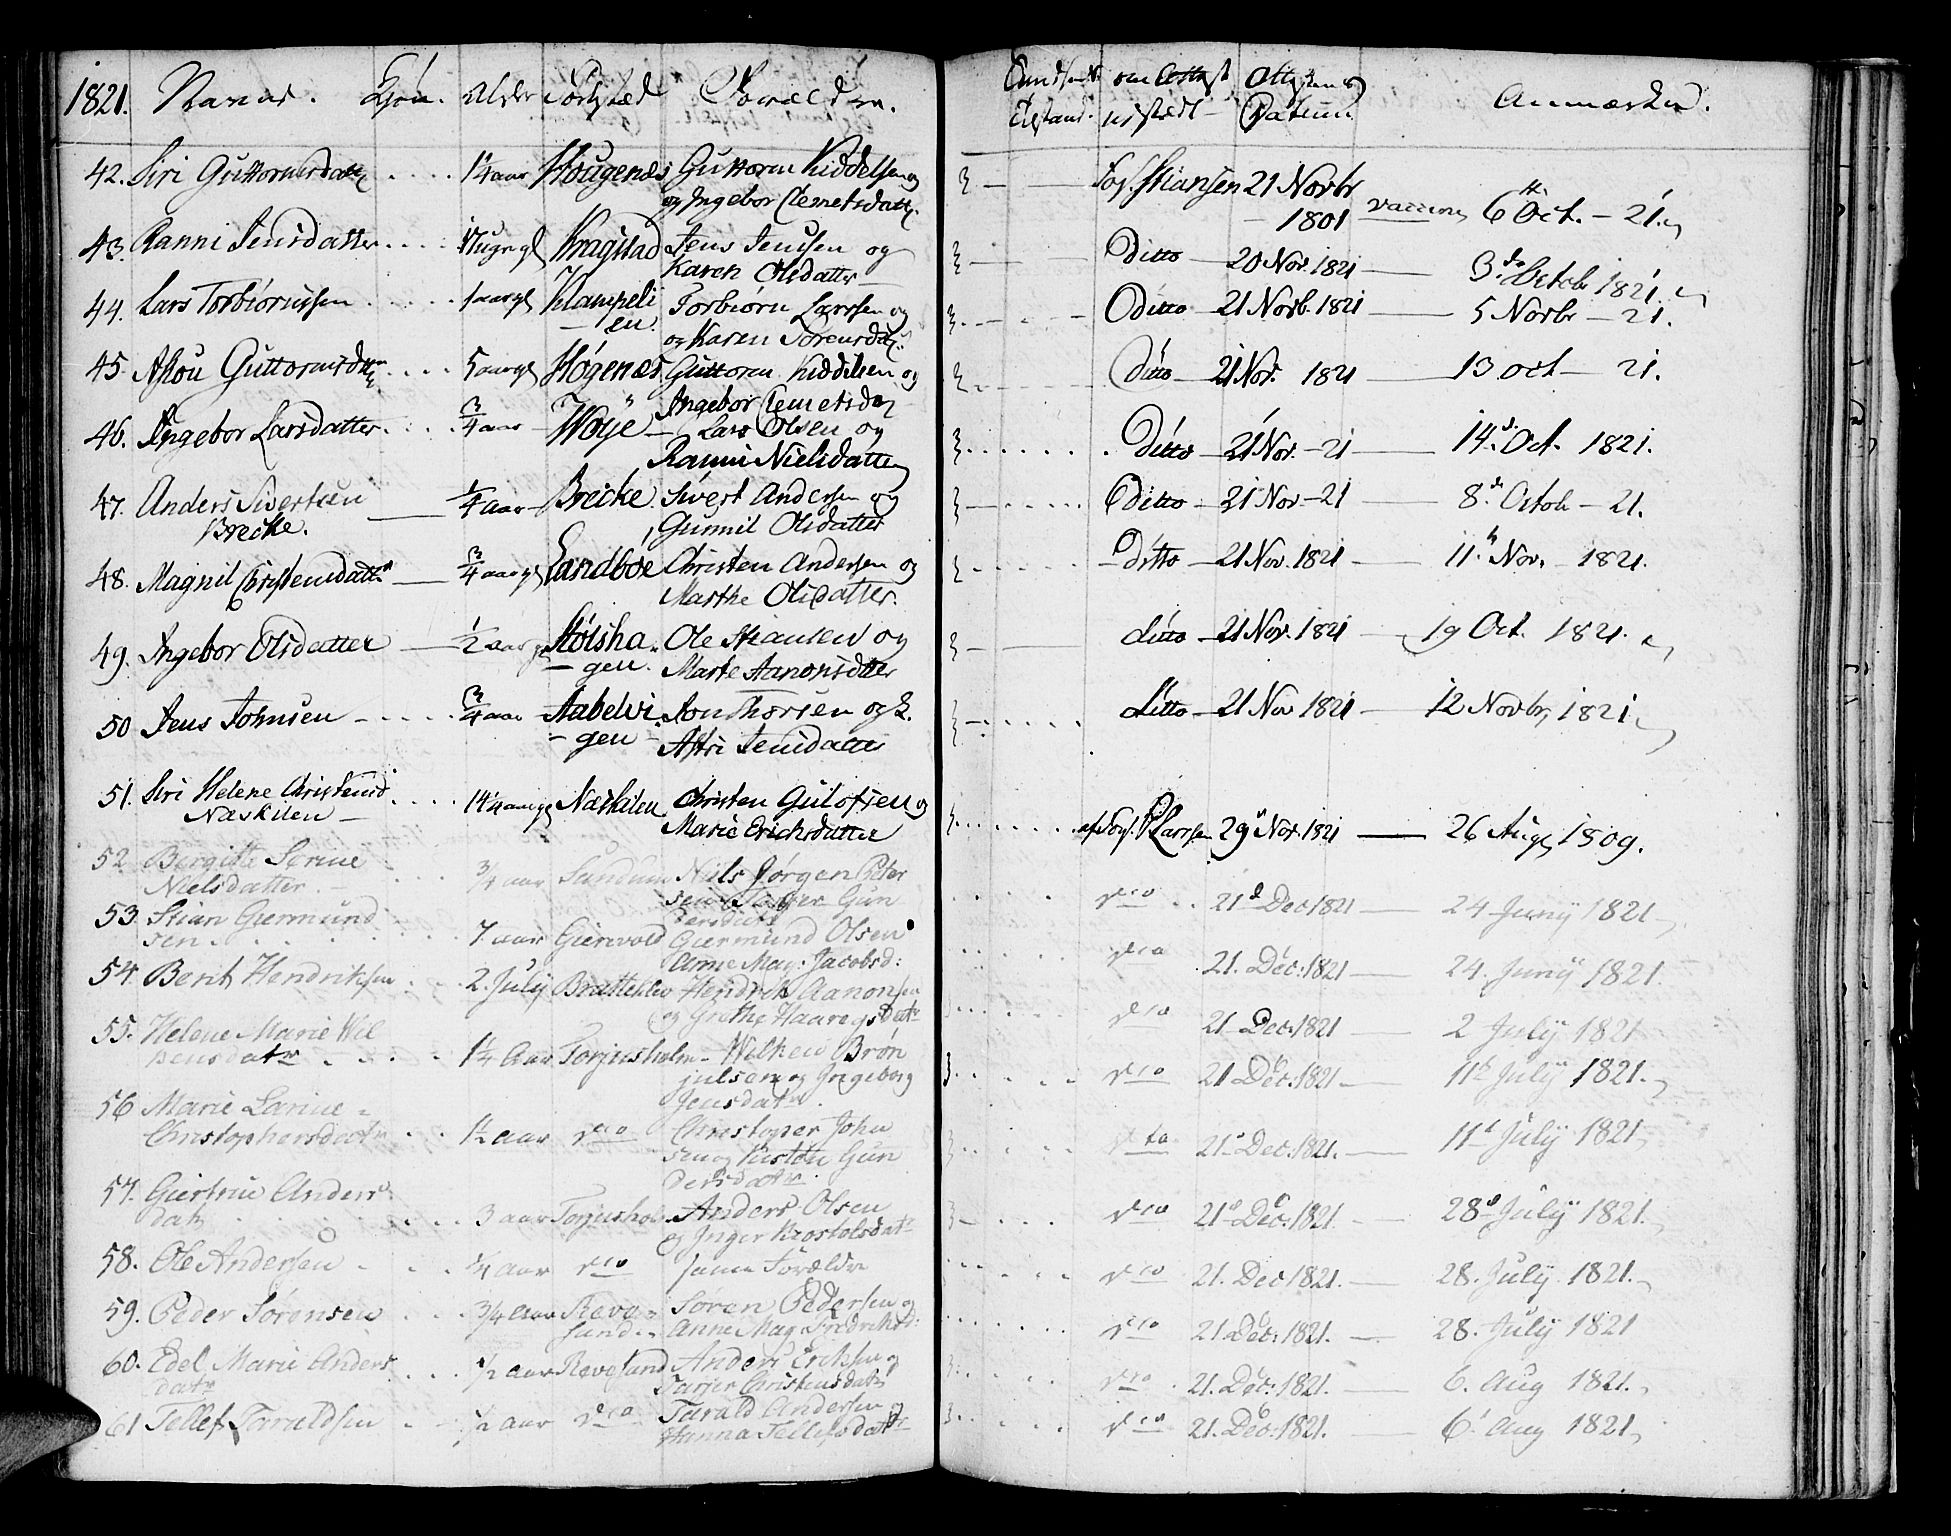 1821. Navne. Kjön. Alder Forældre.
om Attest Attestens Anmærkn.
udstædt Datum.
42. Siri Guttormsdatt .... 1/4 aar Hougenæs Guttorm Kiddelsen og
og Ingebor Clemetsdatt.
Stiansen 21 Novbr
1801 vaccine 6 Oct. - 21.
43. Ranni Jensdatter .... Kragstad Jens Jensen og
Karen Olsdatter
Ditto - 20 Nov. 1821 - 3 Octob 1821.
44. Lars Torbiörnssen .... 1 aar gl Klampeli
en. Torbiörn Larssen og
og Karen Sörensdatt.
Ditto 21 Novb. 1821 - 5 Novbr - 21.
45. Aslou Guttormsdtt .... 5 aar gl Högenæs Guttorm Kiddelsen og
Ingebor Clemetsd
Ditto - 21 Nov. 1821 - 13 oct - 21.
46. Ingebor Larsdatter .... 3/4 aar - Woye - Lars Olsen og
Ranni Nielsdatter
Ditto - 21 Nov. - 21 - 14 Oct. 1821.
47. Anders Sivertsen
Brecke. 1/4 aar - Brecke Sivert Andersen og
Gunnil Olsdatter
Ditto - 21 Nov - 21 - 8 Octob - 21.
48. Magnil Christensdatter - 3/4 aar gl Sandböe Christen Andersen og
Marthe Olsdatter.
Ditto - 21 Nov. 1821 - 11 Nov. - 1821.
49. Ingebor Olsdatter - 1/2 aar gl Stölsha
- gen. Ole Stiansen og
Marte Aanonsdtter
ditto - 21 Nov. 1821 - 19 Oct. 1821.
50 Jens Johnsen - .... 3/4 aar - Aabelvi
- gen - Jon Thorsen og
Astri Jensdatter
ditto - 21 Nov 1821 - 12 Novbr, 1821
51. Siri Helene Christensd
Næskilen - 14 1/4 aar gl Næskilen Christen Gulofsen og
Marie Erichsdatter
af Larssen 29 Nov. 1821 - 26 Aug, 1809.
52 Bergitte Serine
Nielsdatter. - 3/4 aar Sundum Niels Jörgen Peter
sen Tarjer Gun
dersdatr
dto .. 21 Dec 1821 - 24 Juny 1821
53. Stian Giermund
sen. 7 aar Gierevold Giermund Olsen
Anne Mag. Jacobsd:
dto . 21. Dec: 1821 - 24. Juny 1821.
54 Berit Hendriksen 2. July Bratteklev Hendrik Aanonsen
og Grethe Haaregsdatr
dto 21 Dec. 1821 - 2 July 1821
55. Helene Marie Wil
kensdatr 1 1/4 Aar Torjusholm - Wilken Brön
julsen og Ingeborg
Jensdatr.
dto 21 Dec. 1821 - 11 July 1821.
56 Marie Larine
Christophersdatr 1 1/2 aar dto Christoper John
sen og Kirsten Gun
dersdatr.
dto 21 Dec. 1821. - 11 July 1821,
57. Giertrue Anders
datr 3 aar Torjusholm Anders Olsen
og Inger Krostofsdatr
dto 21 Dec. 1821. - 28 July 1821.
58. Ole Andersen 1/4 aar dto samme Forældre
dto 21. Dec 1821. - 28. July 1821.
59. Peder Sörensen 3/4 Aar Reve
sund. Sören Pedersen og
Anne Mag. Fredriksd:
dto 21 Dec: 1821. - 28. July 1821
60. Edel Marie Anders
datr 1/2 aar Revesand Anders Eriksen og
Tarjer Christensdatr
dto . 21. Dec: 1821. - 6. Aug 1821.
61 Tellef Taraldsen 1/2 aar dto Tarald Andersen og
Hanna Tellefsdatr
dto 21. Dec: 1821. - 6 Aug 1821,